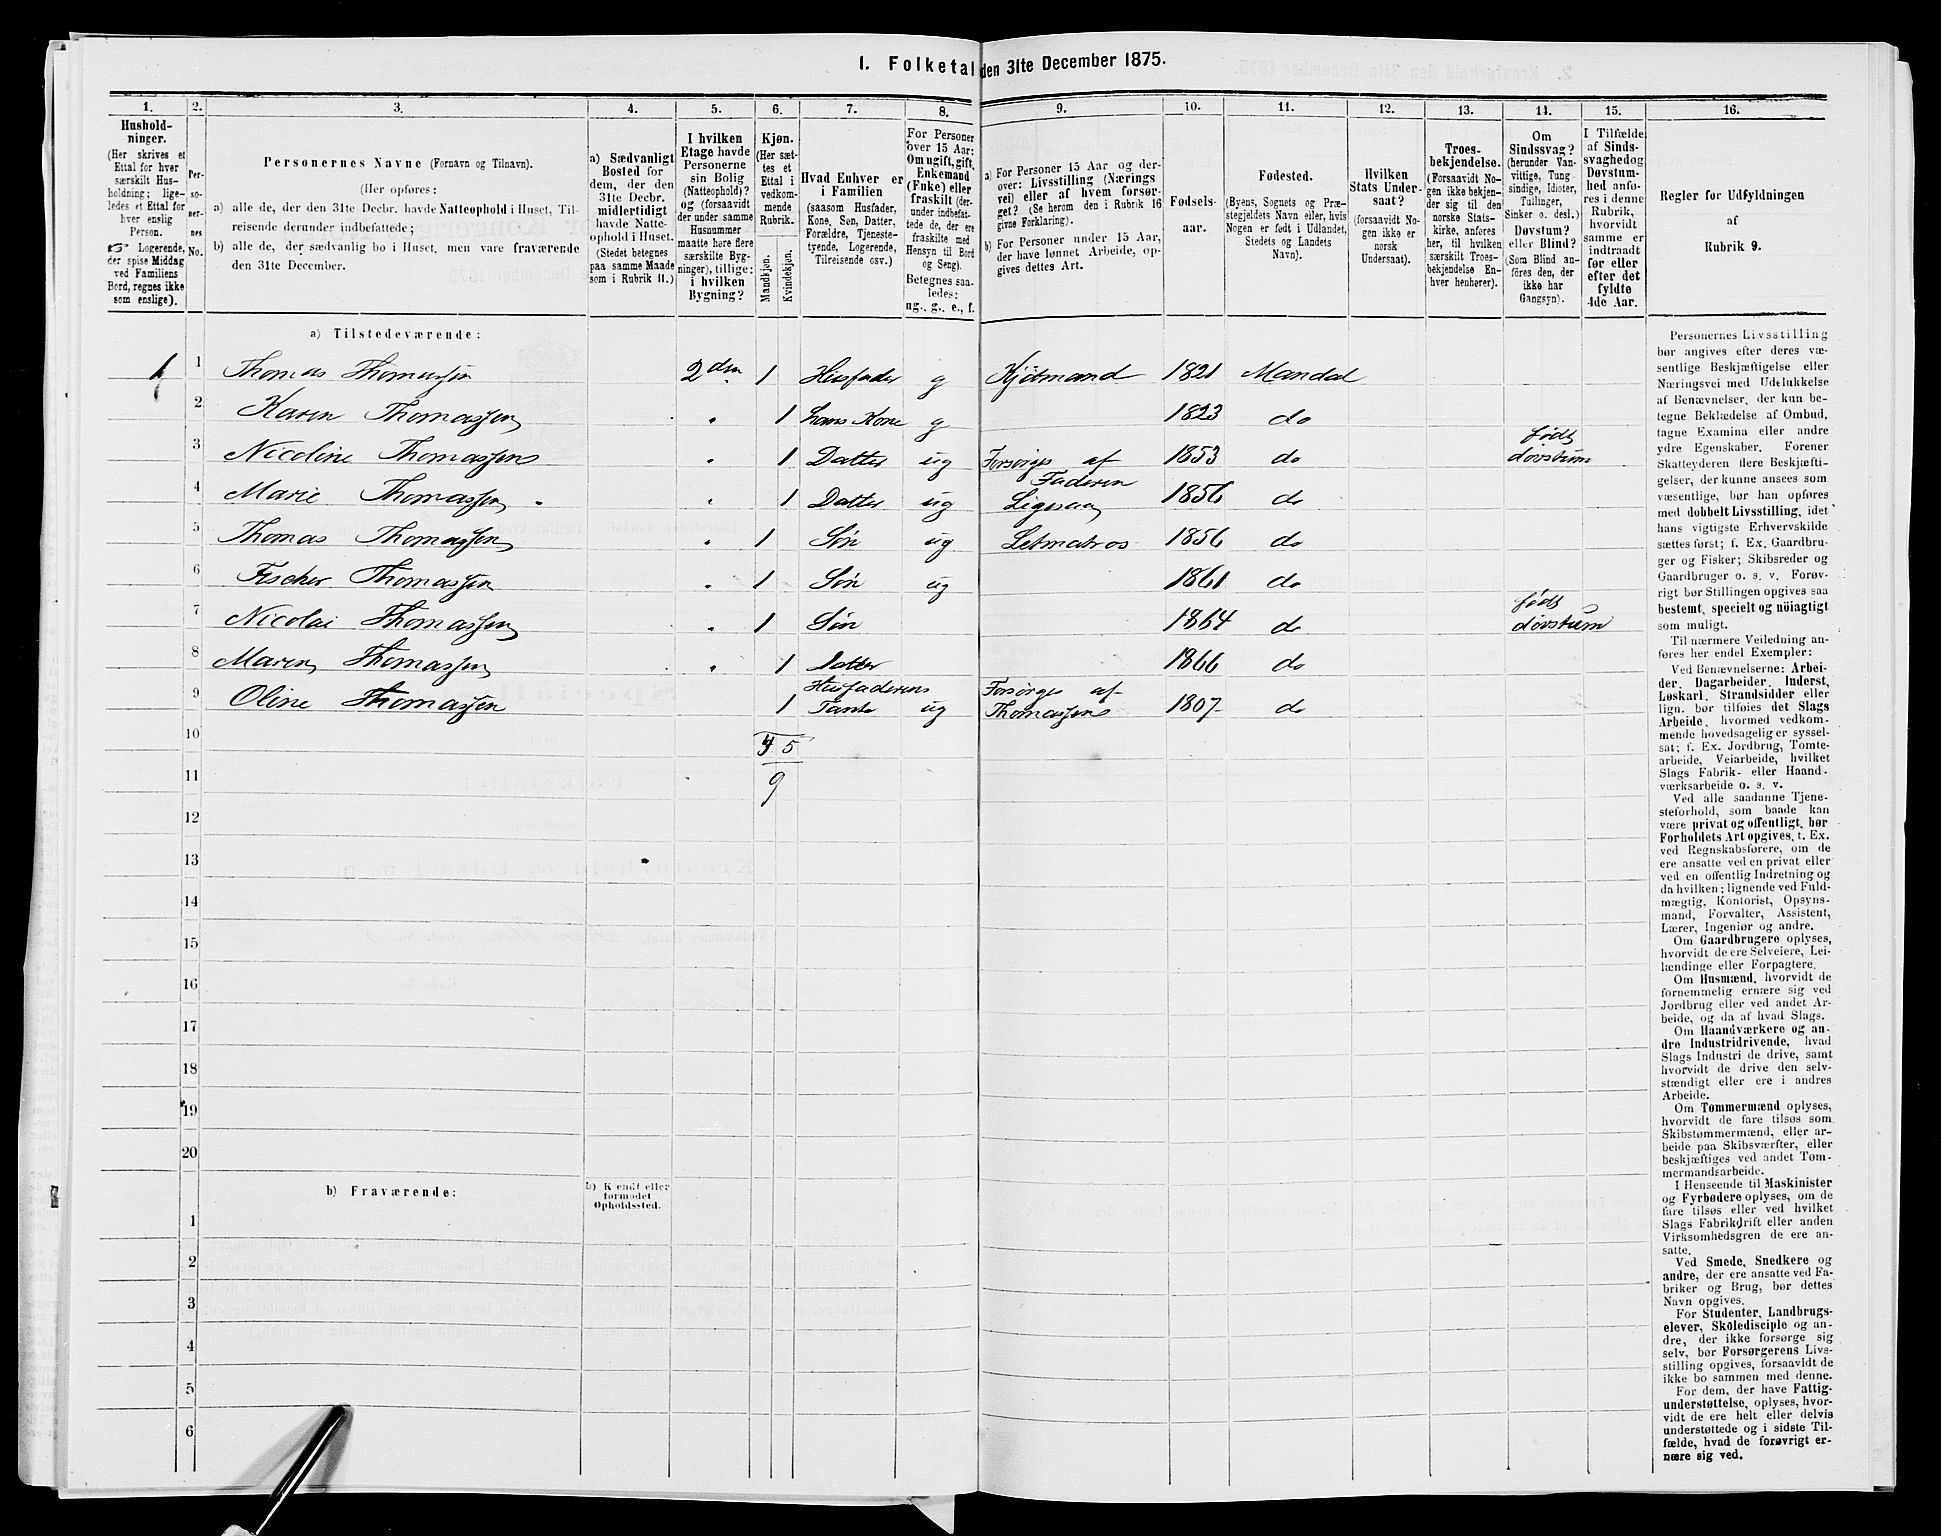 1. Folketal den 31te December 1875.
1. 2. 3. 4. 5. 6. 7. 8. 9. 10. 11. 12. 13. 14. 15. 16.
Hushold-
ninger.
(Her skrives et
Ettal for hver
særskilt Hus-
holdning; lige-
ledes et Ettal for
hver enslig
Person.
☞ Logerende,
der spise Middag
ved Familiens
Bord, regnes ikke
som enslige).
Per-
so-
ner-
nes
No.
Personernes Navne (Fornavn og Tilnavn).
(Her opføres:
a) alle de, der den 31te Decbr. havde Natteophold i Huset, Til-
reisende derunder indbefattede;
b) alle de, der sædvanlig bo i Huset, men vare fraværende
den 31te December.
a) Sædvanligt
Bosted for
dem, der den
31te Decbr.
midlertidigt
havde Natte-
ophold i Huset.
(Stedet betegnes
paa samme Maade
som i Rubrik 11.)
I hvilken
Etage havde
Personerne
sin Bolig
(Natteophold)?
og (forsaavidt
der under samme
Husnummer
maatte høre flere
særskilte Byg-
ninger), tillige:
i hvilken
Bygning?
Kjøn.
(Her sæt-
tes et
Ettal i
vedkom-
mende
Rubrik.
Mandkjøn.
Kvindekjøn.
Hvad Enhver er
i Familien
(saasom Husfader,
Kone, Søn, Datter,
Forældre, Tjeneste-
tyende, Logerende,
Tilreisende osv.)
For Personer
over 15 Aar:
Om ugift, gift,
Enkemand
(Enke) eller
fraskilt (der-
under indbefat-
tede de, der ere
fraskilte med
Hensyn til Bord
og Seng).
Betegnes saa-
ledes:
ug., g., e., f.
a) For Personer 15 Aar og der-
over: Livsstilling (Nærings
vei) eller af hvem forsør-
get? (Se herom den i Rubrik 16
givne Forklaring).
b) For Personer under 15 Aar,
der have lønnet Arbeide, op-
gives dettes Art.
Fødsels-
aar.
Fødested.
(Byens, Sognets og Præ-
stegjeldets Navn eller, hvis
Nogen er født i Udlandet,
Stedets og Landets
Navn).
Hvilken
Stats Under-
saat?
(forsaavidt No-
gen ikke er
norsk
Undersaat).
Troes-
bekjendelse.
(Forsaavidt No-
gen ikke bekjen-
der sig til den
norske Stats-
kirke, anføres
her, til hvilken
særskilt Troes-
bekjendelse En-
hver henhører).
Om
Sindssvag?
(herunder Van-
vittige, Tung
sindige, Idioter,
Tullinger,
Sinker o. desl.)
Døvstum?
eller Blind?
(Som Blind an-
føres den, der
ikke har
Gangsyn).
I Tilfælde
af Sinds-
svaghedog
Døvstum-
hed anfø-
res i denne
Rubrik,
hvorvidt
samme er
indtraadt
før eller
efter det
fyldte
4de Aar.
Regler for Udfyldningen
af
Rubrik 9.
a) Tilstedeværende:
1 1 Thomas Thomassen 2den 1 Husfader g Kjøbmand 1821 Mandal
2 Karen Thomassen " 1 hans Kone g 1823 do
3 Nicoline Thomassen " 1 Datter ug Forsørges af Faderen 1853 do født døvstum
4 Marie Thomassen " 1 Datter ug Ligesaa 1856 do
5 Thomas Thomassen " 1 Søn ug Letmatros 1856 do
6 Fischer Thomassen " 1 Søn ug 1861 do
7 Nicolai Thomassen " 1 Søn 1864 do født døvstum
8 Maren Thomassen " 1 Datter 1866 do
9 Oline Thomassen 1 Husfaderens Tante ug Forsørges af Thomassens 1807 do
10 4 5
11 9
12
13
14
15
16
17
18
19
20
b) Fraværende:
b) Kjendt eller
formodet
Opholdssted.
1
2
3
4
5
6
Personernes Livsstilling
bør angives efter deres væ-
sentlige Beskjæftigelse eller
Næringsvei med Udelukkelse
af Benævnelser, der kun be-
tegne Beklædelse af Ombud,
tagne Examina eller andre
ydre Egenskaber. Forener
Skatteyderen flere Beskjæfti-
gelser, der kunne ansees som
væsentlige, bør han opføres
med dobbelt Livsstilling, idet
hans vigtigste Erhvervskilde
sættes først; f. Ex. Gaardbru-
ger og Fisker; Skibsreder og
Gaardbruger o. s. v. Forøv-
rigt bør Stillingen opgives saa
bestemt, specielt og nöiagtigt
som muligt.
Til nærmere Veiledning an-
føres her endel Exempler:
Ved Benævnelserne: Arbei-
der, Dagarbeider, Inderst,
Løskarl, Strandsidder eller
lign. bør tilføies det Slags
Arbeide, hvormed vedkom-
mende hovedsagelig er syssel-
sat; f. Ex. Jordbrug, Tomte-
arbeide, Veiarbeide, hvilket
Slags Fabrik- eller Haand-
værksarbeide o. s. v.
Ved alle saadanne Tjene-
steforhold, som baade kan
være privat og offentligt, bør
Forholdets Art opgives, t. Ex.
ved Regnskabsførere, om de
ere ansatte ved en privat eller
ved en offentlig Indretning og
da hvilken; lignende ved Fuld-
mægtig, Kontorist, Opsyns-
mand, Forvalter, Assistent,
Lærer, Ingeniør og andre.
Om Gaardbrugere oplyses,
hvorvidt de ere Selveiere, Lei-
lændinge eller Forpagtere.
Om Husmænd, hvorvidt de
fornemmelig ernære sig ved
Jordbrug eller ved andet Ar-
beide, og da af hvad Slags.
Om Haandværkere og an-
dre Industridrivende, hvad
Slags Industri de drive, samt
hvorvidt de drive den selv-
stændigt eller ere i andres
Arbeide.
Om Tømmermænd oplyses,
hvorvidt de fare tilsøs som
Skibstømmermænd, eller ar-
beide paa Skibsværfter, eller
beskjæftiges ved andet Tøm-
mermandsarbeide.
I Henseende til Maskinister
og Fyrbødere oplyses, om de
fare tilsøs eller ved hvilket
Slags Fabrikdrift eller anden
Virksomhedsgren de ere an-
satte.
Ved Smede, Snedkere og
andre, der ere ansatte ved Fa-
briker og Brug, bør dettes
Navn opgives.
For Studenter, Landbrugs-
elever, Skoledisciple og an-
dre, der ikke forsørge sig
selv, bør Forsørgerens Livs-
stilling opgives, forsaavidt de
ikke bo sammen med denne.
For dem, der have Fattig-
understøttelse, oplyses, hvor-
vidt de ere helt eller delvis
understøttede og i sidste Til-
fælde, hvad de forøvrigt er-
nære sig ved.